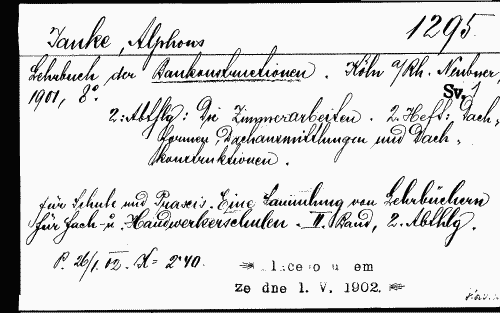 Janke, Alphons 1295.
Lehrbuch der Baukonstructionen. Köln a/Rh. Neubner,
1901, 8°. Sv. 1
2. Abthlg: Die Zimmerarbeiten. 2. Heft: Dach-
formen, Dachausmittlungen und Dach-
konstruktionen.
für Schule und Praxis. Eine Sammlung von Lehrbüchern
für Fach- u. Handwerkerschulen. II. Band, 2. Abthlg.
P. 26/1. 02. K = 2·40.
ze dne 1. V. 1902.